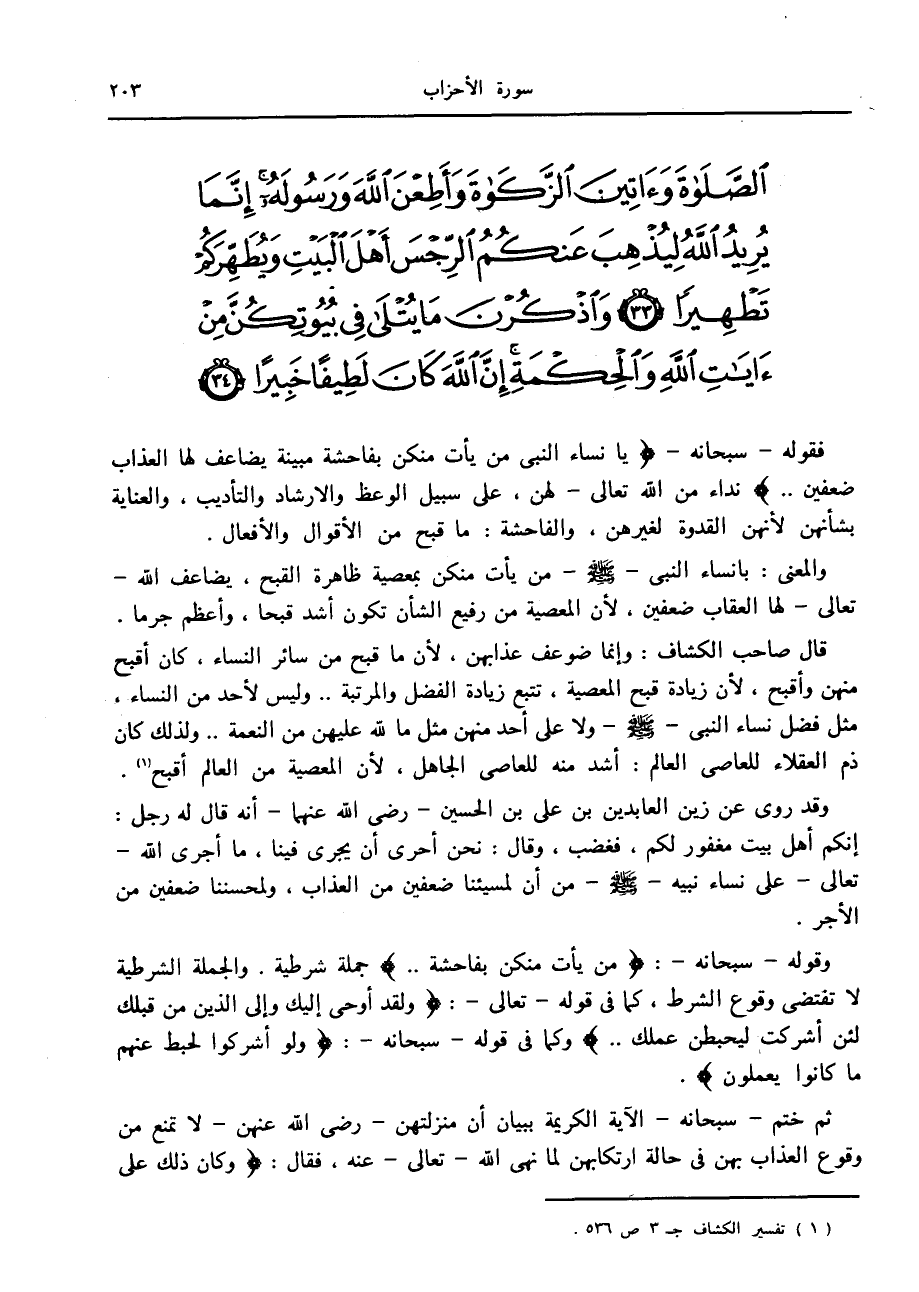 سورة الأحزاب ٢٠٣
ٱلصَّلَوٰةَ وَءَاتِينَ ٱلزَّكَوٰةَ وَأَطِعْنَ ٱللَّهَ وَرَسُولَهُۥٓ ۚ إِنَّمَا
يُرِيدُ ٱللَّهُ لِيُذْهِبَ عَنكُمُ ٱلرِّجْسَ أَهْلَ ٱلْبَيْتِ وَيُطَهِّرَكُمْ
تَطْهِيرًا ﴿٣٣﴾ وَٱذْكُرْنَ مَا يُتْلَىٰ فِى بُيُوتِكُنَّ مِنْ
ءَايَٰتِ ٱللَّهِ وَٱلْحِكْمَةِ ۚ إِنَّ ٱللَّهَ كَانَ لَطِيفًا خَبِيرًا ﴿٣٤﴾
فقوله - سبحانه - ﴿ يا نساء النبى من يأت منكن بفاحشة مبينة يضاعف لها العذاب
ضعفين .. ﴾ نداء من الله تعالى - لهن ، على سبيل الوعظ والارشاد والتأديب ، والعناية
بشأنهن لأنهن القدوة لغيرهن ، والفاحشة : ما قبح من الأقوال والأفعال .
والمعنى : بانساء النبى - ﷺ - من يأت منكن بمعصية ظاهرة القبح ، يضاعف الله -
تعالى - لها العقاب ضعفين ، لأن المعصية من رفيع الشأن تكون أشد قبحا ، وأعظم جرما .
قال صاحب الكشاف : وإنما ضوعف عذابهن ، لأن ما قبح من سائر النساء ، كان أقبح
منهن وأقبح ، لأن زيادة قبح المعصية ، تتبع زيادة الفضل والمرتبة .. وليس لأحد من النساء ،
مثل فضل نساء النبى - ﷺ - ولا على أحد منهن مثل ما لله عليهن من النعمة .. ولذلك كان
ذم العقلاء للعاصى العالم : أشد منه للعاصى الجاهل ، لأن المعصية من العالم أقبح(١) .
وقد روى عن زين العابدين بن على بن الحسين - رضى الله عنهما - أنه قال له رجل :
إنكم أهل بيت مغفور لكم ، فغضب ، وقال : نحن أحرى أن يجرى فينا ، ما أجرى الله -
تعالى - على نساء نبيه - ﷺ - من أن لمسيئنا ضعفين من العذاب ، ولمحسننا ضعفين من
الأجر .
وقوله - سبحانه - : ﴿ من يأت منكن بفاحشة .. ﴾ جملة شرطية . والجملة الشرطية
لا تقتضى وقوع الشرط ، كما فى قوله - تعالى - : ﴿ ولقد أوحى إليك وإلى الذين من قبلك
لئن أشركت ليحبطن عملك .. ﴾ وكما فى قوله - سبحانه - : ﴿ ولو أشركوا لحبط عنهم
ما كانوا يعملون ﴾ .
ثم ختم - سبحانه - الآية الكريمة ببيان أن منزلتهن - رضى الله عنهن - لا تمنع من
وقوع العذاب بهن فى حالة ارتكابهن لما نهى الله - تعالى - عنه ، فقال : ﴿ وكان ذلك على
( ١ ) تفسير الكشاف جـ ٣ ص ٥٣٦ .